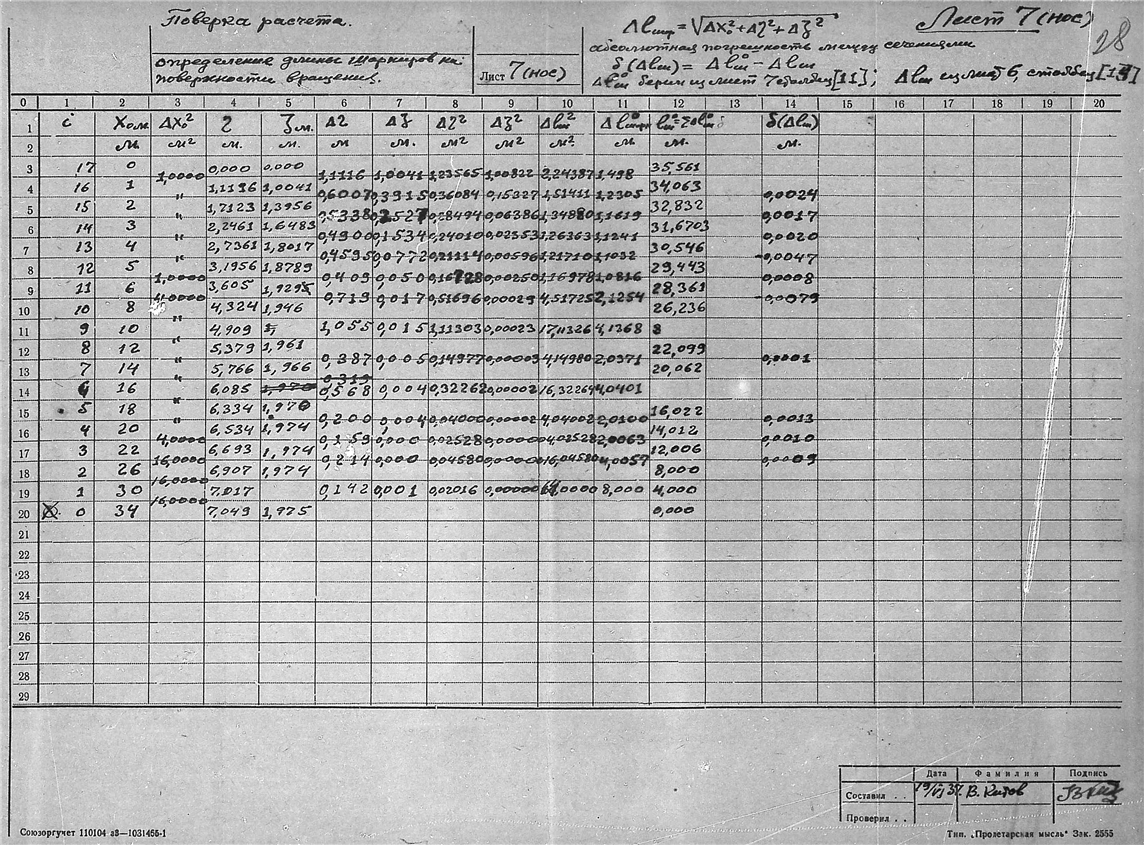 Поверка расчета.
Δlшпр = √ΔX₀² + Δη² + Δζ²
Лист 7 (нос)
28
абсолютная погрешность между сечениями
определение длины шаркиров на
поверхности вращения.
Лист 7 (нос)
δ(Δlш) = Δl⁰ш – Δlш
Δl⁰ш берем из лист 7 столбец [11]; Δlш из лист 6, столбец [13]
0 1 2 3 4 5 6 7 8 9 10 11 12 13 14 15 16 17 18 19 20
1 i X₀м. ΔX₀² η ζм. Δη Δζ Δη² Δζ² Δlш² Δl⁰ш l⁰ш=ΣΔl⁰ш δ(Δlш)
2 м. м² м. м. м м. м² м² м². м м. м.
3 17 0 0,000 0,000 35,561
1,0000 1,1116 1,0041 1,23565 1,00822 2,24387 1,498
4 16 1 1,1116 1,0041 34,063
" 0,6007 0,3915 0,36084 0,15327 1,51411 1,2305 0,0024
5 15 2 1,7123 1,3956 32,832
" 0,5338 0,2527 0,28494 0,06386 1,34880 1,1619 0,0017
6 14 3 2,2461 1,6483 31,6703
" 0,4900 0,1534 0,24010 0,02353 1,26363 1,1241 0,0020
7 13 4 2,7361 1,8017 30,546
" 0,4595 0,0772 0,21114 0,00596 1,21710 1,1032 -0,0047
8 12 5 3,1956 1,8789 29,443
1,0000 0,409 0,050 0,16728 0,00250 1,16978 1,0816 0,0008
9 11 6 3,605 1,9295 28,361
4,0000 0,719 0,017 0,51696 0,00029 4,51725 2,1254 -0,0079
10 10 8 4,324 1,946 26,236
"
11 9 10 4,909 1,055 0,015 1,11303 0,00023 17,11326 4,1368 8
"
12 8 12 5,379 1,961 22,099
" 0,387 0,005 0,14977 0,00003 4,14980 2,0371 0,0001
13 7 14 5,766 1,966 20,062
" 0,319
14 6 16 6,085 1,970 0,568 0,004 0,32262 0,00002 16,32264 4,0401
"
15 5 18 6,334 1,970 16,022
" 0,200 0,004 0,04000 0,00002 4,04002 2,0100 0,0013
16 4 20 6,534 1,974 14,012
4,0000 0,159 0,000 0,02528 0,00000 4,02528 2,0063 0,0010
17 3 22 6,693 1,974 12,006
16,0000 0,214 0,000 0,04580 0,00000 16,04580 4,0057 0,0009
18 2 26 6,907 1,974 8,000
16,0000
19 1 30 7,017 0,142 0,001 0,02016 0,00000 64,0000 8,000 4,000
16,0000
20 0 34 7,049 1,975 0,000
21
22
23
24
25
26
27
28
29
Дата Фамилия Подпись
Составил . . 19/VI 37. В. Китов
Проверил . .
Союзоргучет 110104 аЗ—1031455-1
Тип. „Пролетарская мысль" Зак. 2555